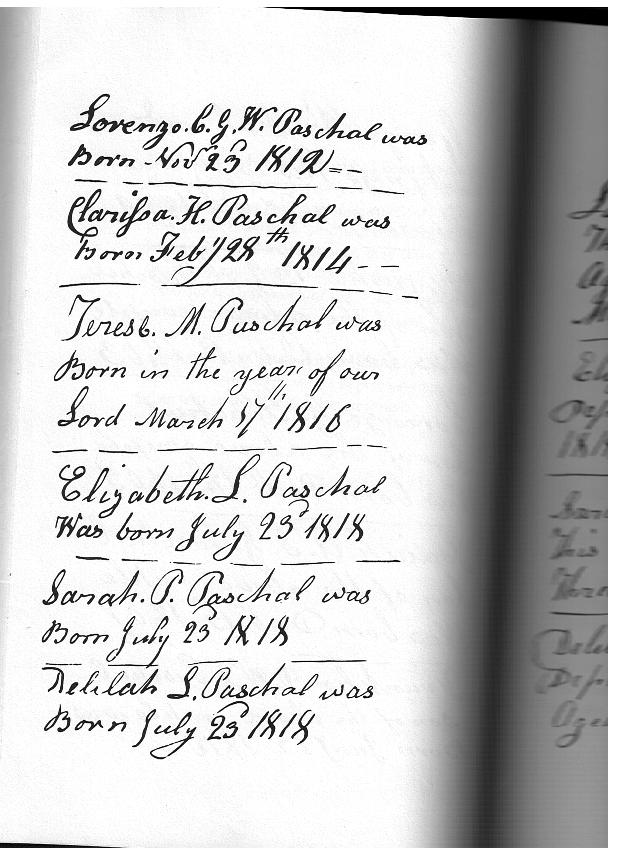 Lorenzo. C. G. W. Paschal was
Born Nov 23 1812
Clarissa. H. Paschal was
Born Feby 28th 1814
M. Paschal was
Born in the year of our
Lord March 17th 1816
Elizabeth. L. Paschal
Was born July 23d 1818
Sarah. P. Paschal was
Born July 23 1818
Delilah L. Paschal was
Born July 23 1818